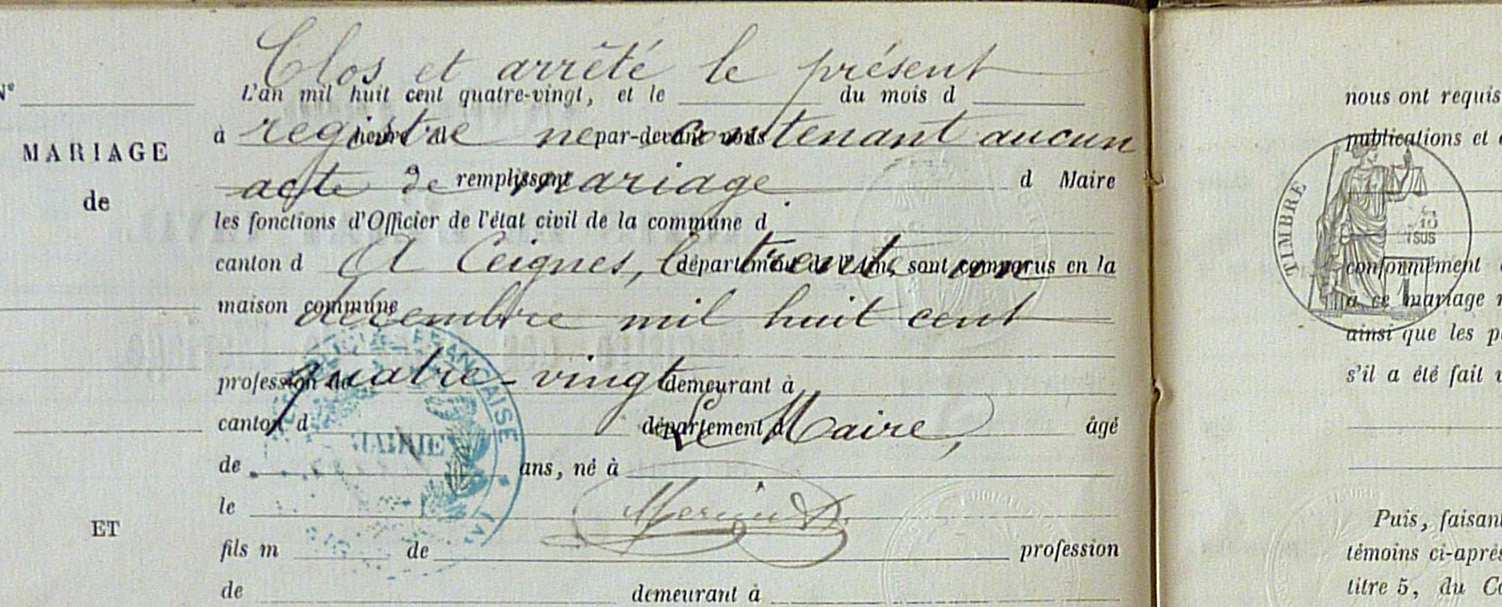 Clos et arrêté le présent
N°
L'an mil huit cent quatre-vingt, et le du mois d
registre ne contenant aucun
à heure de par-devant nous
MARIAGE
de
acte de mariage
remplissant d Maire
les fonctions d'Officier de l'état civil de la commune d
A Ceignes, le trente un
canton d département de l'Ain, sont comparus en la
décembre mil huit cent
maison commune
quatre-vingt
profession de demeurant à
Le Maire,
canton d département d âgé
de ans, né à
le
ET
fils m de profession
de demeurant à
FRANÇAISE
MAIRIE
nous ont requis
publications et
TIMBRE
conformément
à ce mariage
ainsi que les
s'il a été fait
Puis, faisant
témoins ci-après
titre 5, du